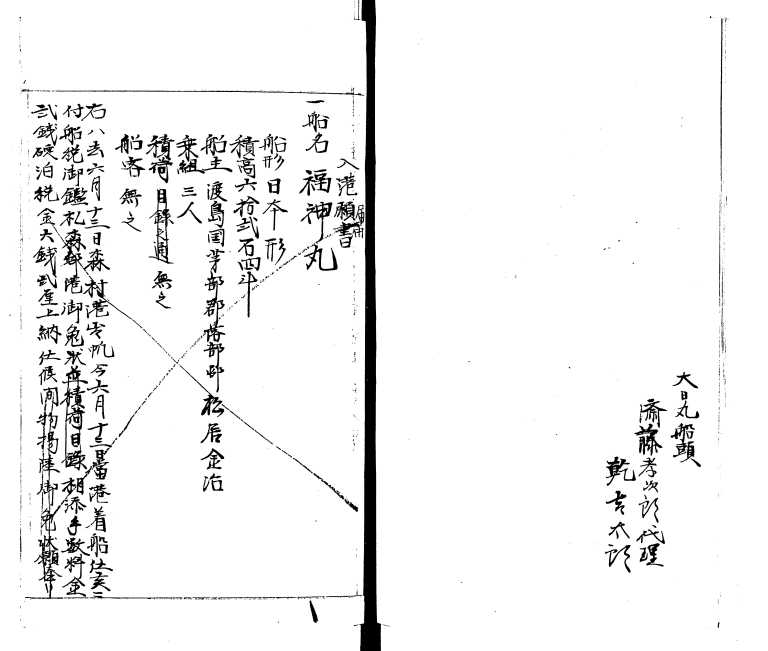 大日丸船頭
齊藤孝次郎代理
乾吉太郎
入港願書
一船名 福神丸
船形日本形
積高六拾弐石四斗
船主渡島国茅部郡落部村 松居金治
乗組三人
積荷目録之通無之
船客無之
右ハ去六月十三日森村港出帆今六月十三日当港着船仕
付船税御鑑札森村港御免状並積荷目録相添手数料金
弐銭碇泊税金六銭弐厘上納仕候間物揚陸御免状願